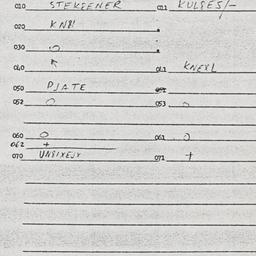 010 STEKGENER 011 KULGES/-
020 KN81
030 O
040 041 KNEXL
050 PJATE
052 O 053 O
060 O 061 O
062 +
070 UNGIXEJY 071 +